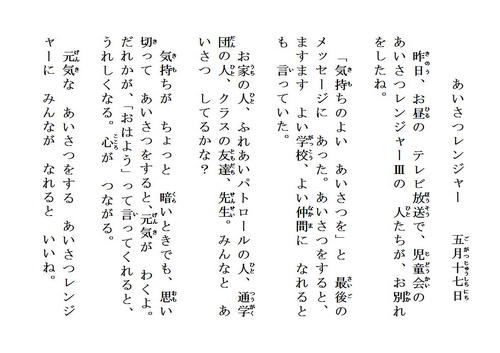 あいさつレンジャー　五月十七日
昨日、お昼の　テレビ放送で、児童会の
あいさつレンジャーⅢの　人たちが、お別れ
をしたね。
「気持ちのよい　あいさつを」と　最後の
メッセージに　あった。あいさつをすると、
ますます　よい学校、よい仲間に　なれると
も　言っていた。
お家の人、ふれあいパトロールの人、通学
団の人、クラスの友達、先生。みんなと　あ
いさつ　してるかな？
気持ちが　ちょっと　暗いときでも、思い
切って　あいさつをすると、元気が　わくよ。
だれかが、「おはよう」って言ってくれると、
うれしくなる。心が　つながる。
元気な　あいさつをする　あいさつレンジ
ャーに　みんなが　なれると　いいね。